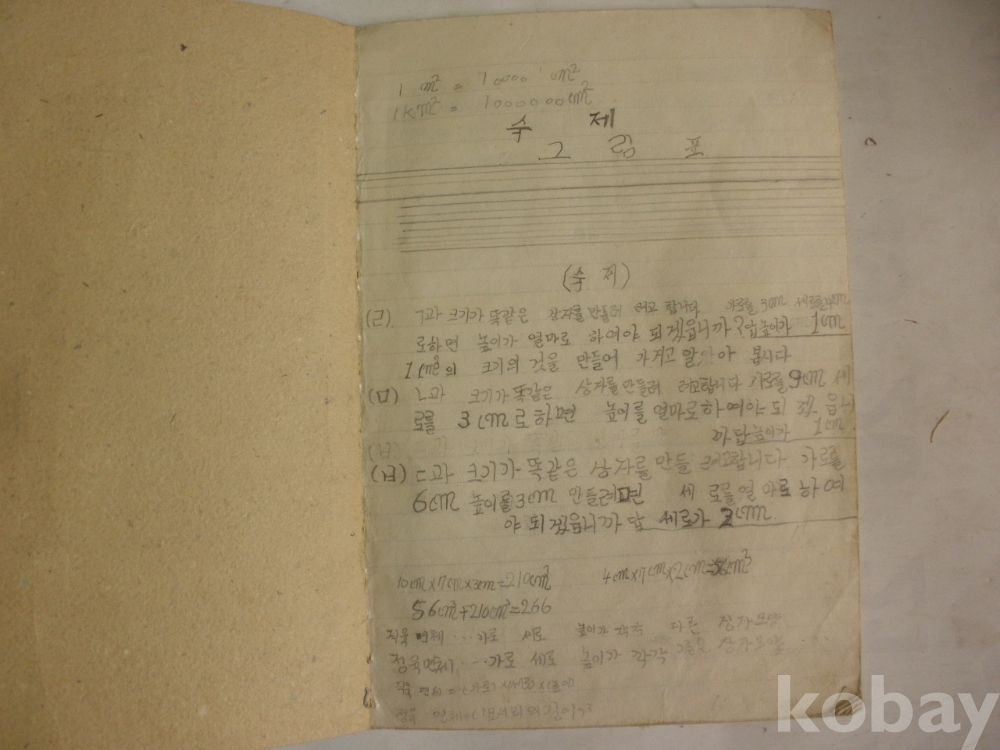 1 m² = 10000 cm²
1 km² = 1000000 cm²
숙 제
그 림 포
(숙 제)
(ㄹ) ㄱ과 크기가 똑같은 상자를 만들려 려고 합니다. 가로를 3cm 세로를 4cm
로하면 높이가 얼마로 하여야 되겠읍니까? 답 높이가 1cm
1cm³의 크기의 것을 만들어 가지고 알아 봅니다
(ㅁ) ㄴ과 크기가 똑같은 상자를 만들려 려고합니다 가로를 9cm 세
로를 3cm로 하면 높이를 얼마로하여야 되겠읍니
까 답 높이가 1cm
(ㅂ) ㄷ과 크기가 똑같은 상자를 만들 려고합니다 가로를
6cm 높이를 3cm 만들려면 세로를 얼마로 하여
야 되겠읍니까 답 세로가 2cm.
10cm×7cm×3cm=210cm³ 4cm×7cm×2cm=56cm³
56cm³+210cm³=266
직육면체 ···· 가로 세로 높이가 각각 다른 상자모양
정육면체 ···· 가로 세로 높이가 각각 같은 상자모양
직육면체=(가로)×(세로)×(높이)
kobay